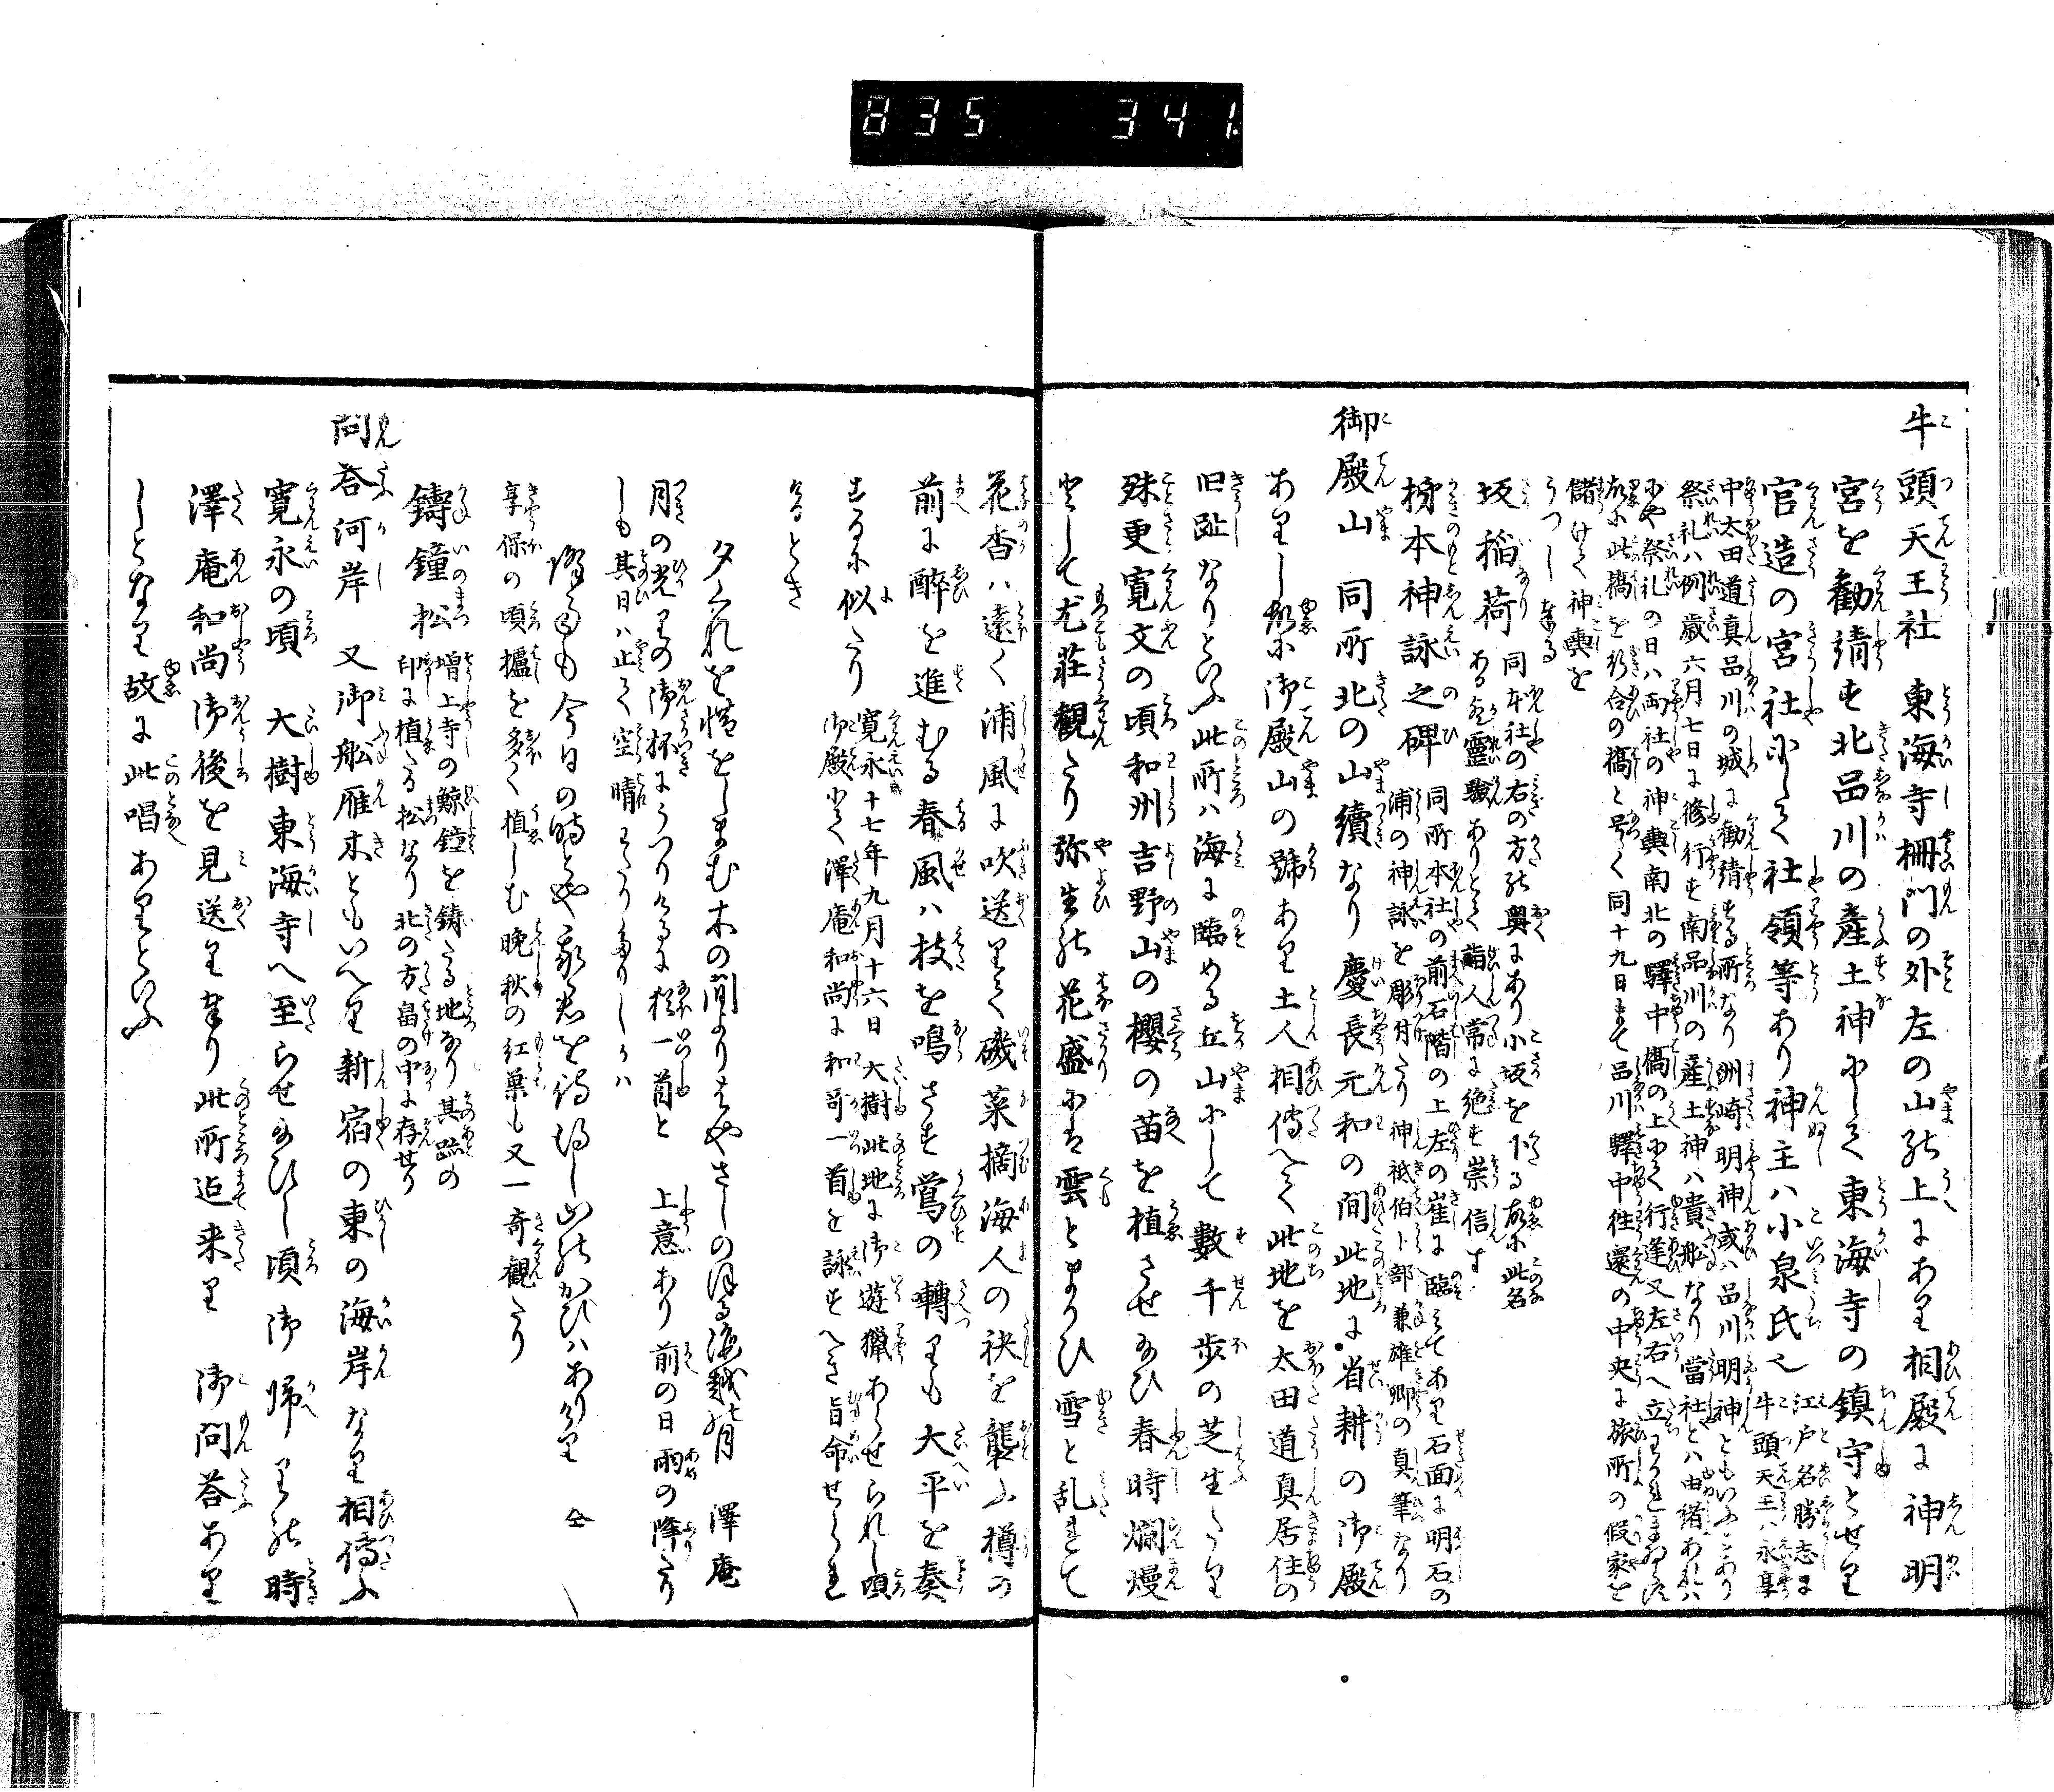 835 341.
牛頭天王社 東海寺柵門の外左の山の上にあり相殿に神明
宮を勧請す北品川の産土神にして東海寺の鎮守とせり
官造の宮社にして社領等あり神主ハ小泉氏也 江戸名勝志に
牛頭天王ハ永享
中太田道真品川の城に勧請する所なり洲崎明神或ハ品川明神ともいふとあり
祭礼ハ例歳六月七日に修行す南品川の産土神ハ貴船なり當社とハ由緒あれハ
にや祭礼の日ハ両社の神輿南北の驛中橋の上にて行逢又左右へ立
故に此橋を行合の橋と号く同十九日まて品川驛中往還の中央に旅所の假家を
儲けて神輿を
うつし奉る
坂稲荷 同本社の右の方の奥にあり小坂を下る故に此名
ある霊験ありとて詣人常に絶す崇信す
柿本神詠之碑 同所本社の前石階の上左の崖に臨みてあり石面に明石の
浦の神詠を彫付たり神祇伯卜部兼雄卿の真筆なり
御殿山 同所北の山續なり慶長元和の間此地に省耕の御殿
ありし故に御殿山の號あり土人相傳へて此地を太田道真居住の
旧趾なりといふ此所ハ海に臨める丘山にして數千歩の芝生たり
殊更寛文の頃和州吉野山の櫻の苗を植させ給ひ春時爛熳
として尤荘観たり弥生の花盛にハ雲とまかひ雪と乱れて
花香ハ遠く浦風に吹送りて磯菜摘海人の袂を襲ふ樽の
前に酔を進むる春風ハ枝を鳴さす鴬の囀りも大平を奏
するに似たり 寛永十七年九月十六日 大樹此地に御遊猟あらせられし頃
御殿にて澤庵和尚に和哥一首を詠すへき旨命せられ
けるとき
夕くれを惜をしまむ木の間よりはやさしのほる海越の月 澤庵
月の光りの御杯にうつりけるに猶一首と 上意あり前の日雨の降たり
しも其日ハ止て空晴わたりたりしかハ
降雨も今日の時とや我君を待得し山のかひハありけり 仝
享保の頃櫨を多く植しむ晩秋の紅葉も又一奇観たり
鑄鐘松 増上寺の鯨鐘を鋳たる地なり其跡の
印に植たる松なり北の方畠の中に存せり
問答河岸 又御舩雁木ともいへり新宿の東の海岸なり相傳ふ
寛永の頃 大樹東海寺へ至らせ給ひし頃御帰りの時
澤庵和尚御後を見送り奉り此所迄来り 御問答あり
しとなり故に此唱ありといふ